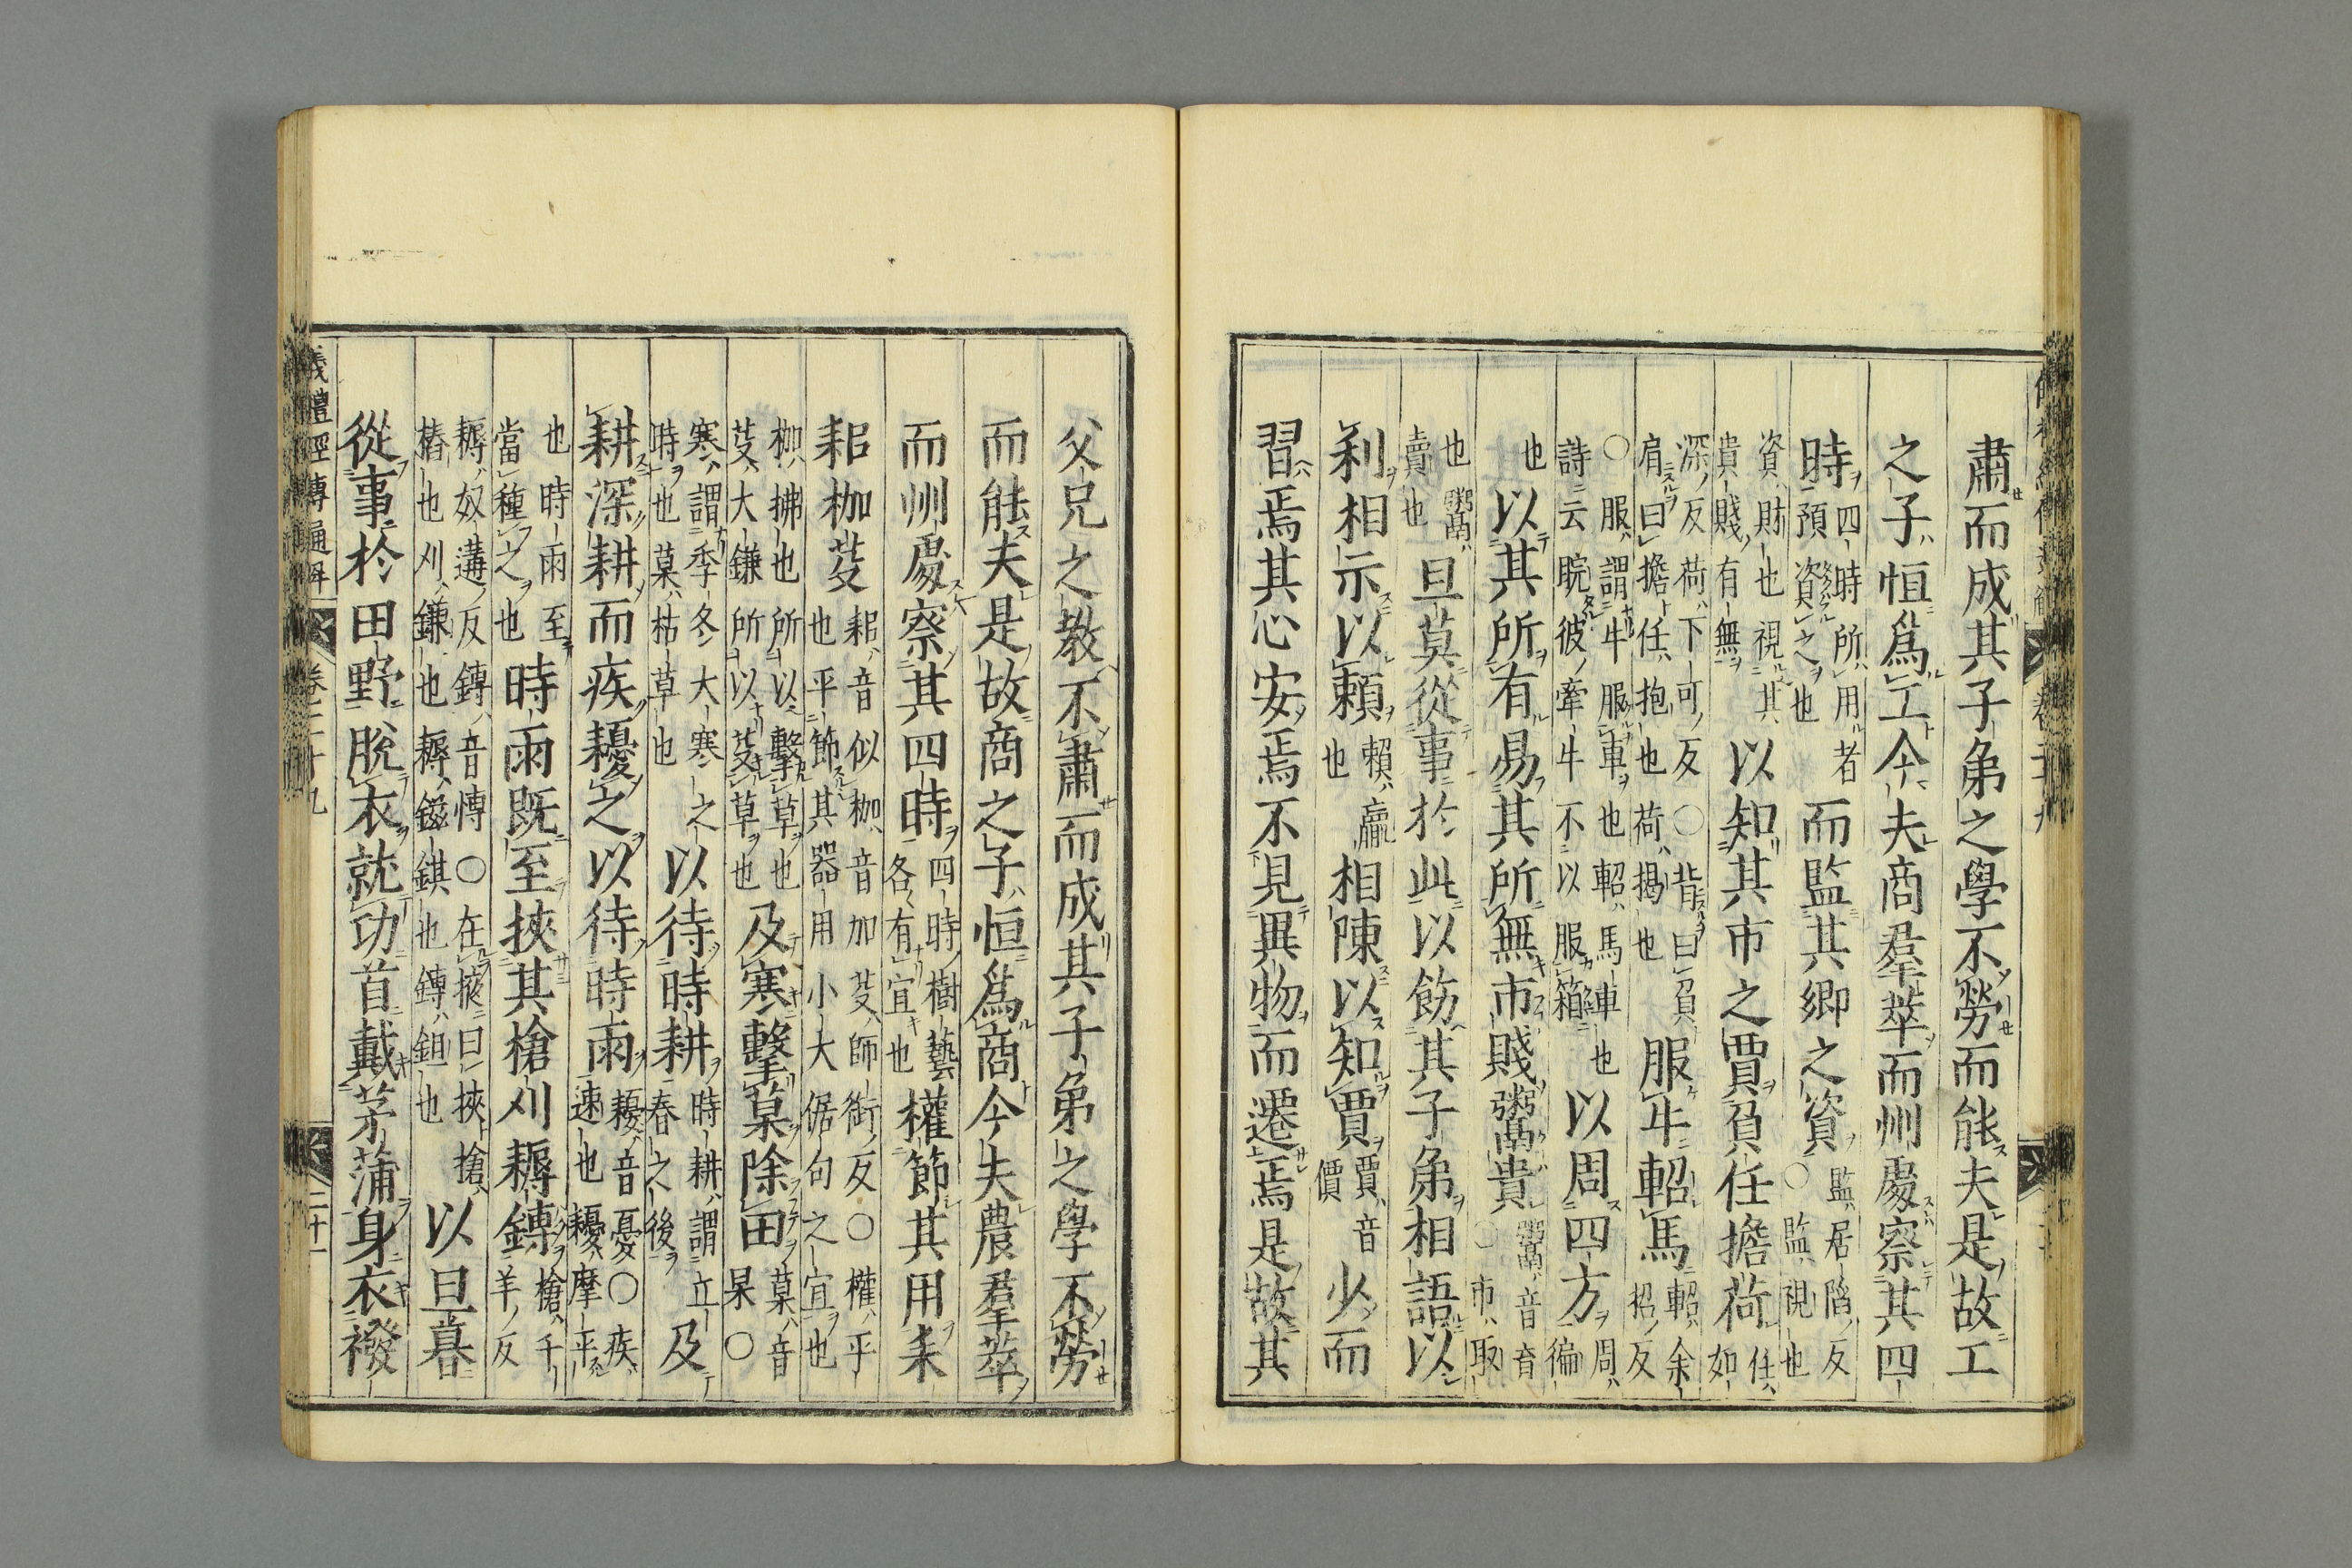 肅而成其子弟之學不勞而能夫是故工
之子恒爲工令夫商羣萃而州處察其四
時四時所用者預資之也而監其鄉之資監居陷反○監視也
資財也視其貴賤有無以知其市之賈負任擔荷任如
深反荷下可反○背曰負肩曰擔任抱也荷揭也服牛軺馬軺余招反
○服謂牛服車也軺馬車也詩云睆彼牽牛不以服箱以周四方周徧
也以其所有易其所無市賤鬻貴鬻音育○市取
也鬻賣也旦莫從事於此以飭其子弟相語以
利相示以賴賴贏也相陳以知賈賈音價少而
習焉其心安焉不見異物而遷焉是故其
父兄之教不肅而成其子弟之學不勞
而能夫是故商之子恒爲商令夫農羣萃
而州處察其四時四時樹藝各有宜也權節其用耒
耜枷芟耜音似枷音加芟師銜反○權平也平節其器用小大倨句之宜也
枷拂也所以擊草也芟大鎌所以芟草也及寒擊菒除田菒音杲○
寒謂季冬大寒之時也菒枯草也以待時耕時耕謂立春之後及
耕深耕而疾耰之以待時雨耰音憂○疾速也耰摩平
也時雨至當種之也時雨既至挾其槍刈耨鎛槍千羊反
耨奴遘反鎛音愽○在掖曰挾槍樁也刈鎌也耨鎡錤也鎛鉏也以旦暮
從事於田野脫衣就功首戴茅蒲身衣襏
儀禮經傳通解
卷二十九
二十一